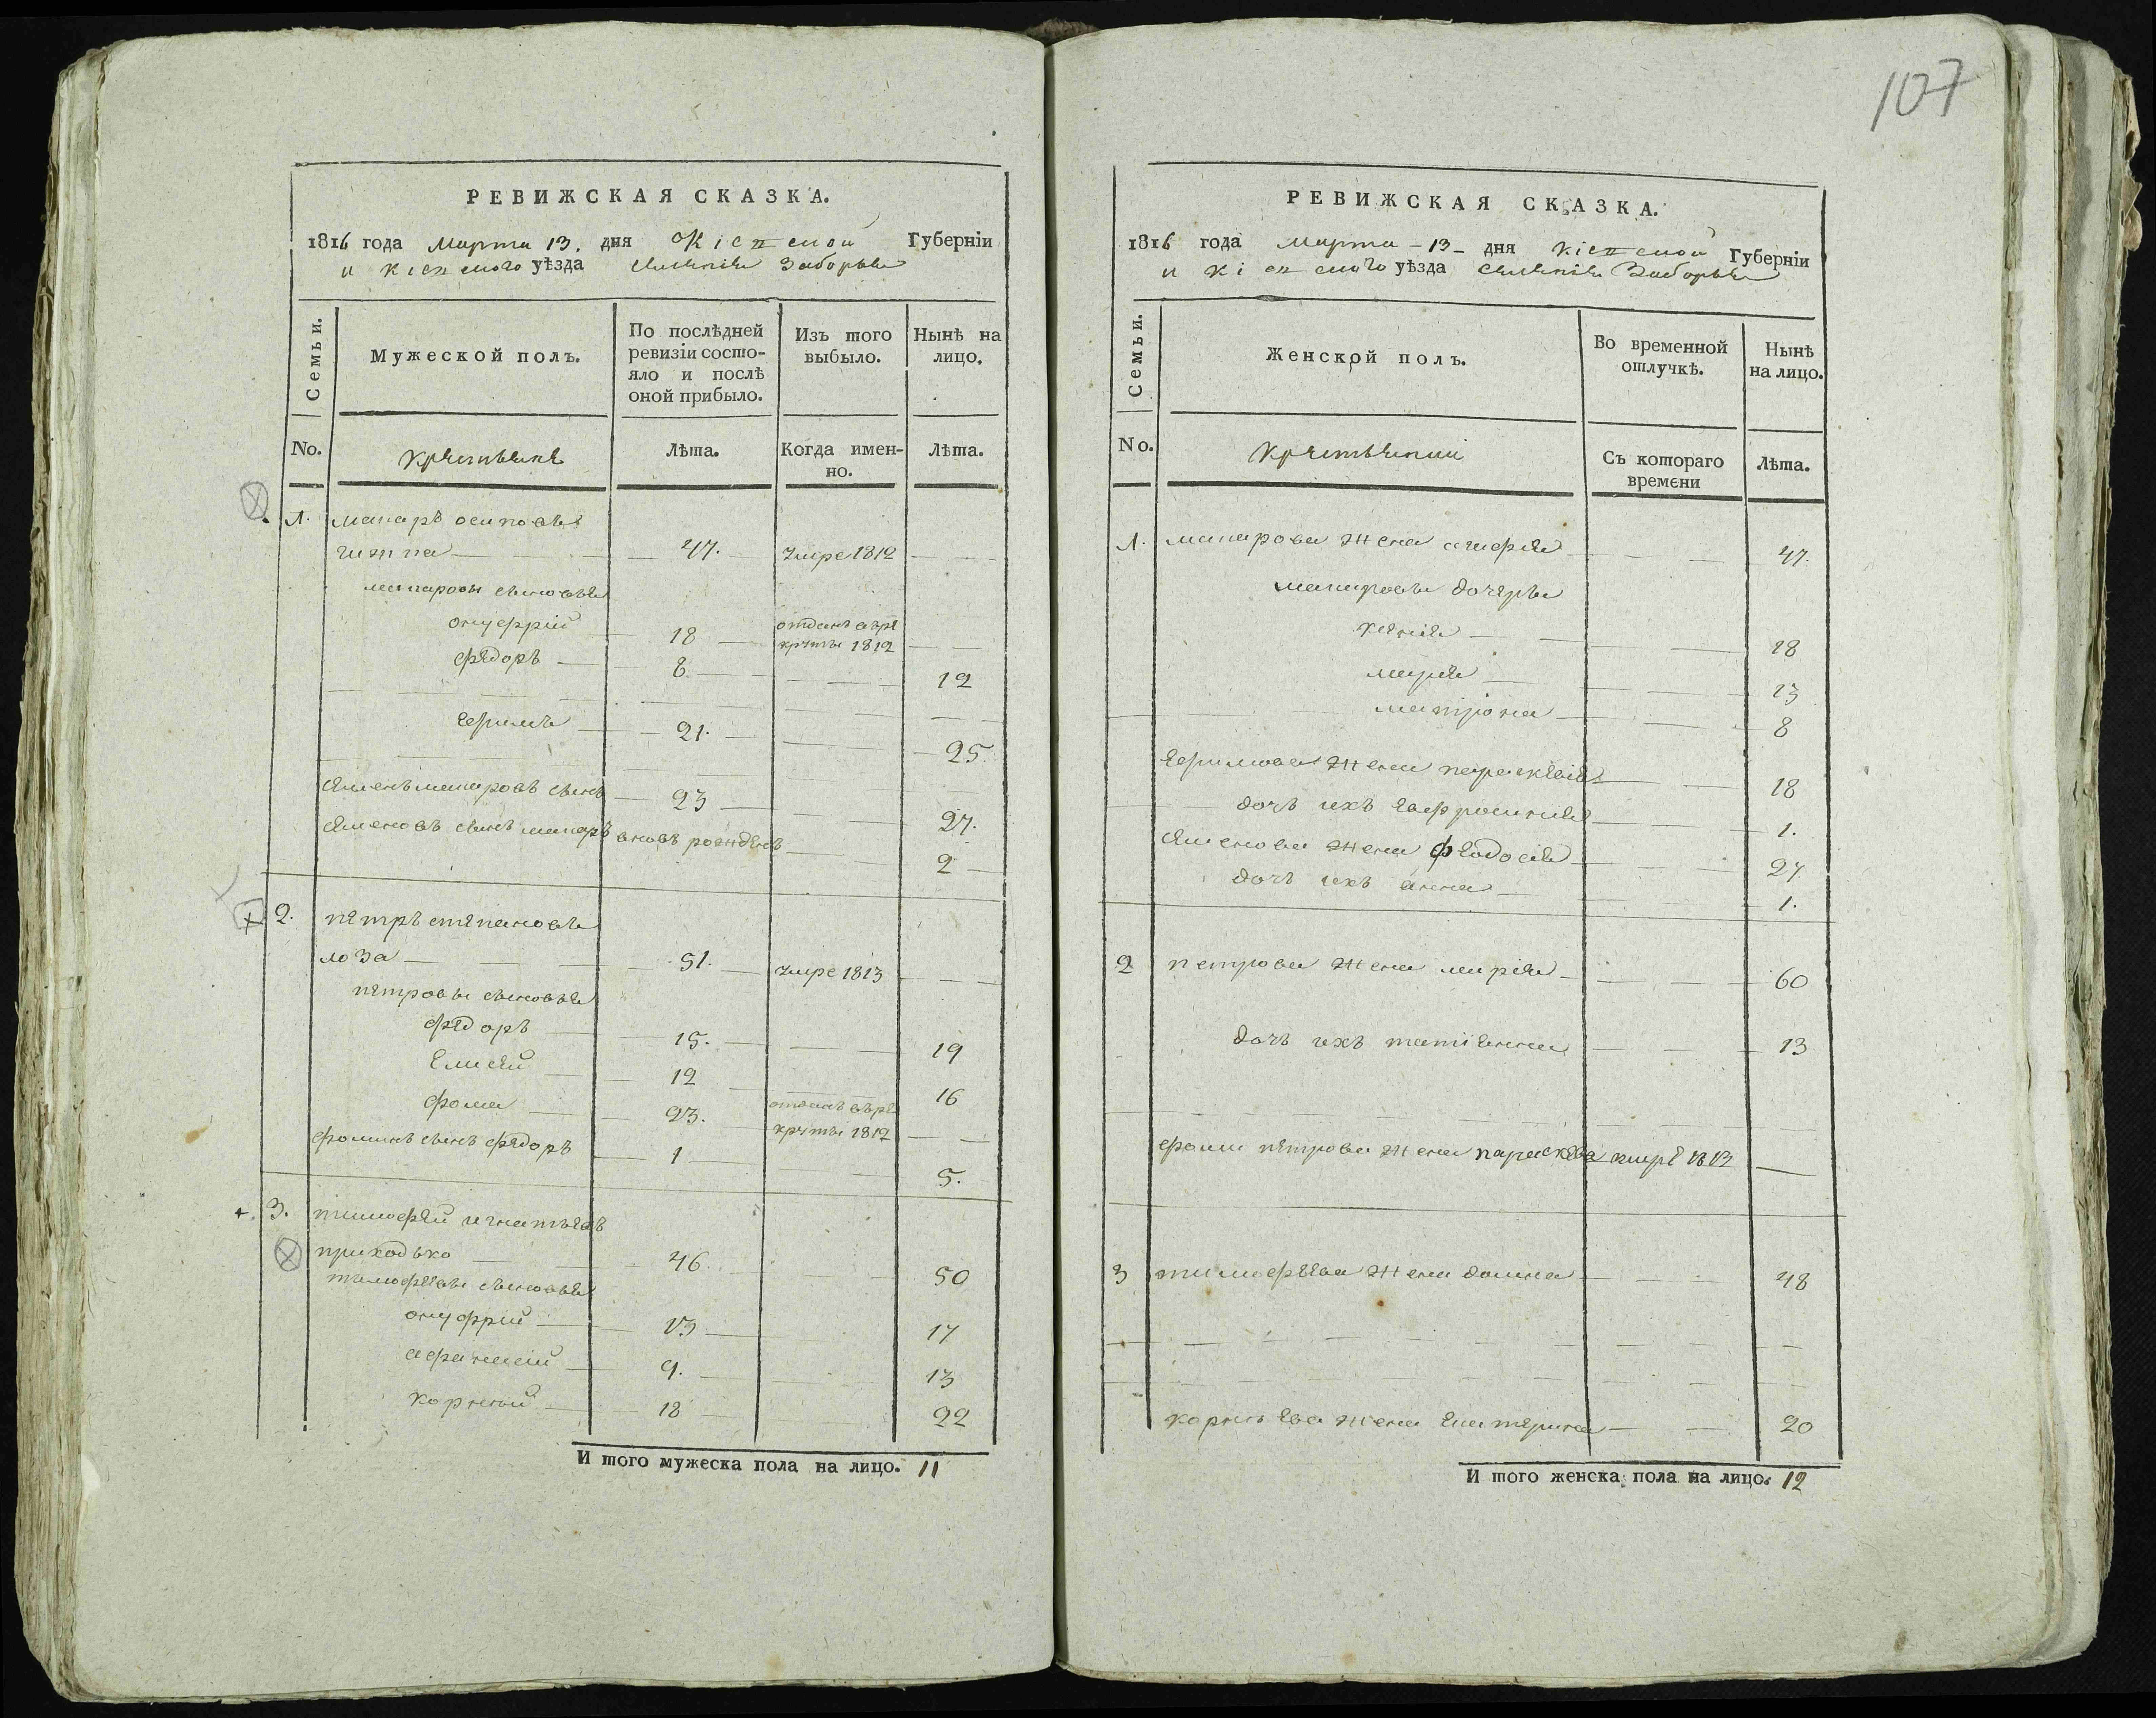 107
РЕВИЖСКАЯ СКАЗКА.
1816 года марта 13. дня Кіевской Губерніи
и Кіевского уѣзда селенія Заборья
Семьи.
Мужеской полъ.
По послѣдней ревизіи состо-
яло и послѣ оной прибыло.
Изъ того выбыло.
Нынѣ на лицо.
No.
крестьяне
Лѣта.
Когда имен-
но.
Лѣта.
1. макаръ осиповъ
47. умре 1812
макаровы сыновья
онуфрій 18 отданъ въ ре
круты 1812
федоръ 8 12
ефимъ 21. 25.
семенъ макаровъ сынъ 23 27.
семеновъ сынъ макаръ вновь рожденъ 2
2. петръ степановъ
лоза 51. умре 1813
петровы сыновья
федоръ 15. 19
елисей 12 16
фома 23. отданъ въ ре
круты 1812
фоминъ сынъ федоръ 1 5.
3. тимофей игнатьевъ
приходько 46. 50
тимофеевы сыновья
онуфрій 13 17
афанасій 9. 13
корнѣй 18 22
И того мужеска пола на лицо. 11
РЕВИЖСКАЯ СКАЗКА.
1816 года марта 13 дня Кіевской Губерніи
и Кіевского уѣзда селенія Заборья
Семьи.
Женской полъ.
Во временной отлучкѣ.
Нынѣ на лицо.
No.
крестьянки
Съ котораго времени
Лѣта.
1. макарова жена 47.
макаровы дочери
18
марія 13
матрона 8
ефимова жена параскевія 18
дочь ихъ евфросинія 1.
семенова жена феодосія 27
дочь ихъ анна 1.
2 петрова жена марія 60
дочь ихъ татіянна 13
фомы петрова жена параскева умре 1813
3 тимофеева жена домна 48
корнѣева жена екатерина 20
И того женска пола на лицо. 12